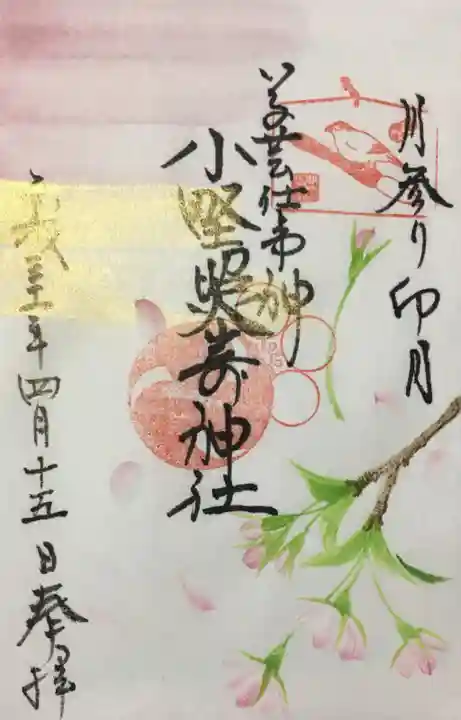 月参り卯月
学芸仕事神
小野照崎神社
平成三十一年四月十五日奉拝